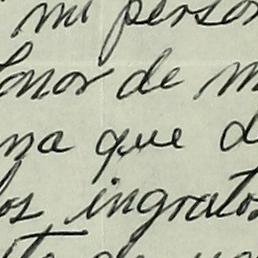 mi person
onor de m
ma que d
los ingratos